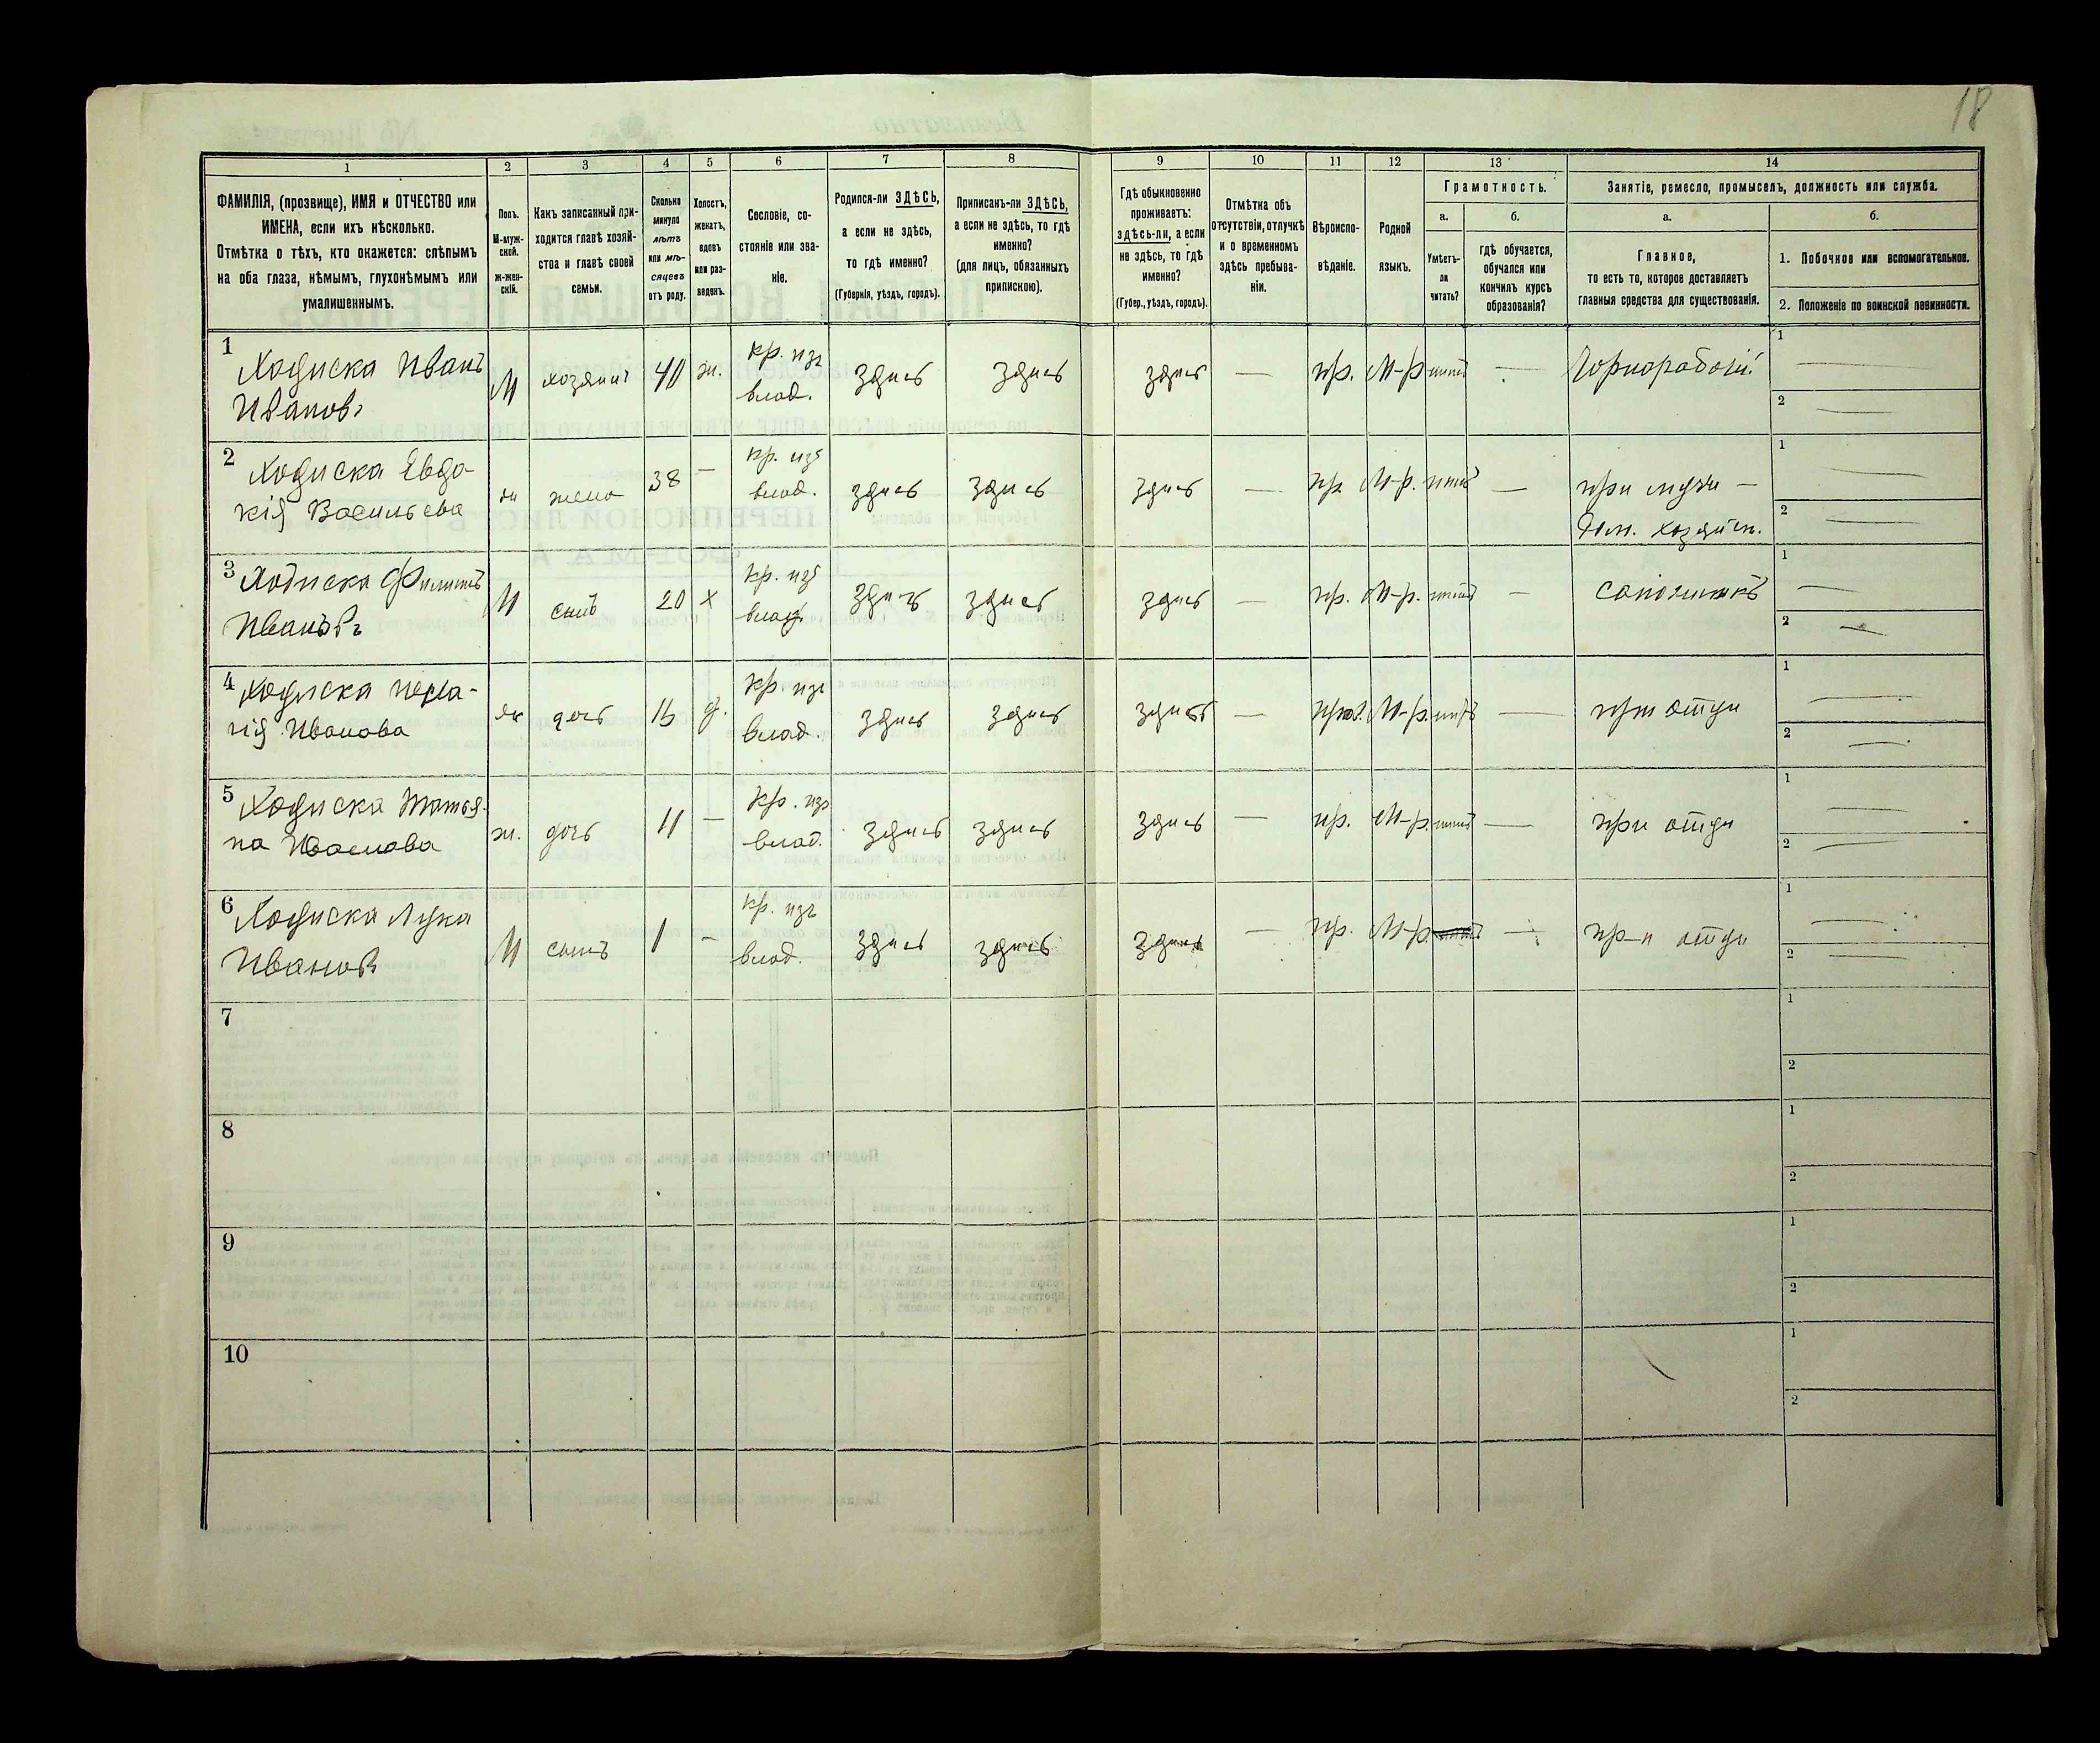 18
1 2 3 4 5 6 7 8 9 10 11 12 13 14
ФАМИЛІЯ, (прозвище), ИМЯ и ОТЧЕСТВО или
ИМЕНА, если ихъ нѣсколько.
Отмѣтка о тѣхъ, кто окажется: слѣпымъ
на оба глаза, нѣмымъ, глухонѣмымъ или
умалишеннымъ.
Полъ.
М-муж-
ской.
ж-жен-
скій.
Какъ записанный при-
ходится главѣ хозяй-
ства и главѣ своей
семьи.
Сколько
минуло
лѣтъ
или мѣ-
сяцевъ
отъ роду.
Холостъ,
женатъ,
вдовъ
или раз-
веденъ.
Сословіе, со-
стояніе или зва-
ніе.
Родился-ли ЗДѢСЬ,
а если не здѣсь,
то гдѣ именно?
(Губернія, уѣздъ, городъ).
Приписанъ-ли ЗДѢСЬ,
а если не здѣсь, то гдѣ
именно?
(для лицъ, обязанныхъ
припискою).
Гдѣ обыкновенно
проживаетъ:
здѣсь-ли, а если
не здѣсь, то гдѣ
именно?
(Губер., уѣздъ, городъ).
Отмѣтка объ
отсутствіи, отлучкѣ
и о временномъ
здѣсь пребыва-
ніи.
Вѣроиспо-
вѣданіе.
Родной
языкъ.
Грамотность.
а.
Умѣетъ-
ли
читать?
б.
гдѣ обучается,
обучался или
кончилъ курсъ
образованія?
Занятіе, ремесло, промыселъ, должность или служба.
а.
Главное,
то есть то, которое доставляетъ
главныя средства для существованія.
б.
1. Побочное или вспомогательное.
2. Положеніе по воинской повинности.
1 Ходиска Иванъ
Ивановъ
М хозяинъ 40 ж. кр. изъ
влад. здись здись здись — пр. М-р нитъ — Чорнорабочій 1 —
2 —
2 Ходиска Евдо-
кія Васильева
ж жена 38 — кр. изъ
влад. здись здись здись — пр. М-р. нитъ — при мужи —
Дом. хозяйст. 1 —
2 —
3 Ходиска Филиппъ
Ивановъ
М сынъ 20 х кр. изъ
влад. здись здись здись — пр. М-р. нитъ — сапожникъ 1 —
2 —
4 Ходиска Пела-
гія Иванова
ж дочь д. кр. изъ
влад. здись здись здись — М-р. нитъ — при отци 1 —
2 —
5 Ходиска Татья-
на Иванова
ж. дочь 11 — кр. изъ
влад. здись здись здись — пр. М-р. нитъ — при отци 1 —
2 —
6 Ходиска Лука
Ивановъ
М сынъ 1 — кр. изъ
влад. здись здись здись — пр. М-р. — при отци 1 —
2 —
7 1
2
8 1
2
9 1
2
10 1
2